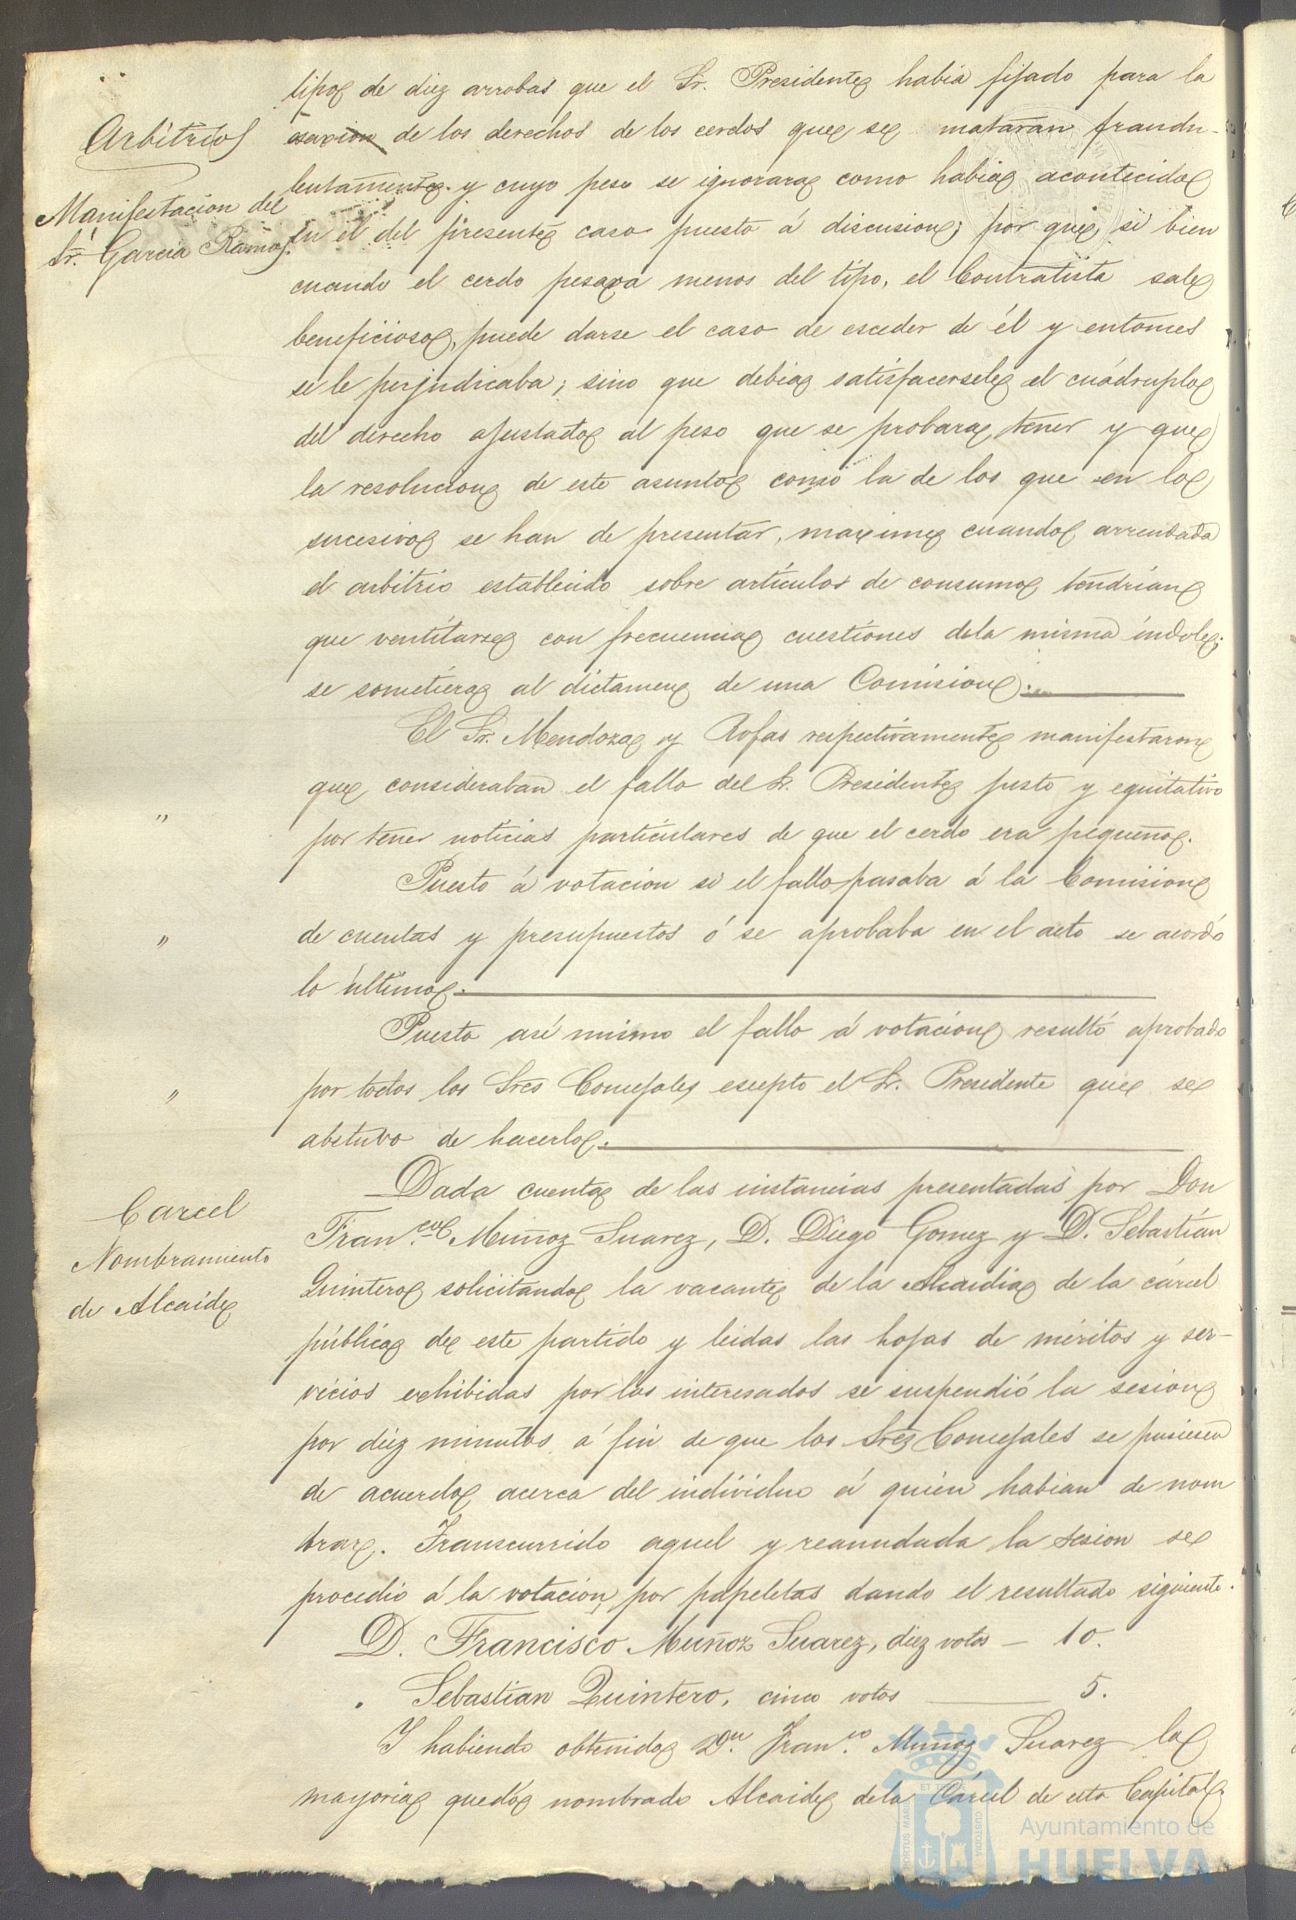 Arbitrios
Manifestacion del
Sr. Garcia Ramos.
tipo de diez arrobas que el Sr. Presidente habia fijado para la
esaccion de los derechos de los cerdos que se mataran fraudu-
lentamente y cuyo peso se ignorara como habia acontecido
en el del presente caso puesto á discusion; por que si bien
cuando el cerdo pesara menos del tipo, el Contratista sale
beneficioso, puede darse el caso de esceder de él y entonces
se le perjudicaba; sino que debia satisfacersele el cuádruplo
del derecho ajustado al peso que se probara tener y que
la resolucion de este asunto como la de los que en lo
sucesivo se han de presentar, maxime cuando arrendada
el arbitrio establecido sobre artículos de consumo tendrian
que ventilarse con frecuencia cuestiones de la misma índole;
se sometiera al dictamen de una Comision.
El Sr. Mendoza y Rojas respectivamente manifestaron
que consideraban el fallo del Sr. Presidente justo y equitativo
"
por tener noticias particulares de que el cerdo era pequeño.
Puesto á votacion si el fallo pasaba á la Comision
"
de cuentas y presupuestos ó se aprobaba en el acto se acordó
lo último.
Puesto asi mismo el fallo á votacion resultó aprobado
"
por todos los Sres Concejales escepto el Sr. Presidente que se
abstuvo de hacerlo.
Carcel
Nombramiento
de Alcaide
Dada cuenta de las instancias presentadas por Don
Fran.co Muñoz Suarez, D. Diego Gomez y D. Sebastián
Quintero solicitando la vacante de la Alcaidia de la cárcel
pública de este partido y leidas las hojas de méritos y ser-
vicios exhibidas por los interesados se suspendió la sesion
por diez minutos á fin de que los Sres Concejales se pusiesen
de acuerdo acerca del individuo á quién habian de nom
brar. Transcurrido aquel y reanudada la sesion se
procedió á la votación por papeletas dando el resultado siguiente.
D. Francisco Muñoz Suarez, diez votos — 10.
" Sebastian Quintero, cinco votos — 5.
Y habiendo obtenido Dn. Fran.co Muñoz Suarez la
mayoria quedó nombrado Alcaide de la Cárcel de esta Capital.
Ayuntamiento de
HUELVA